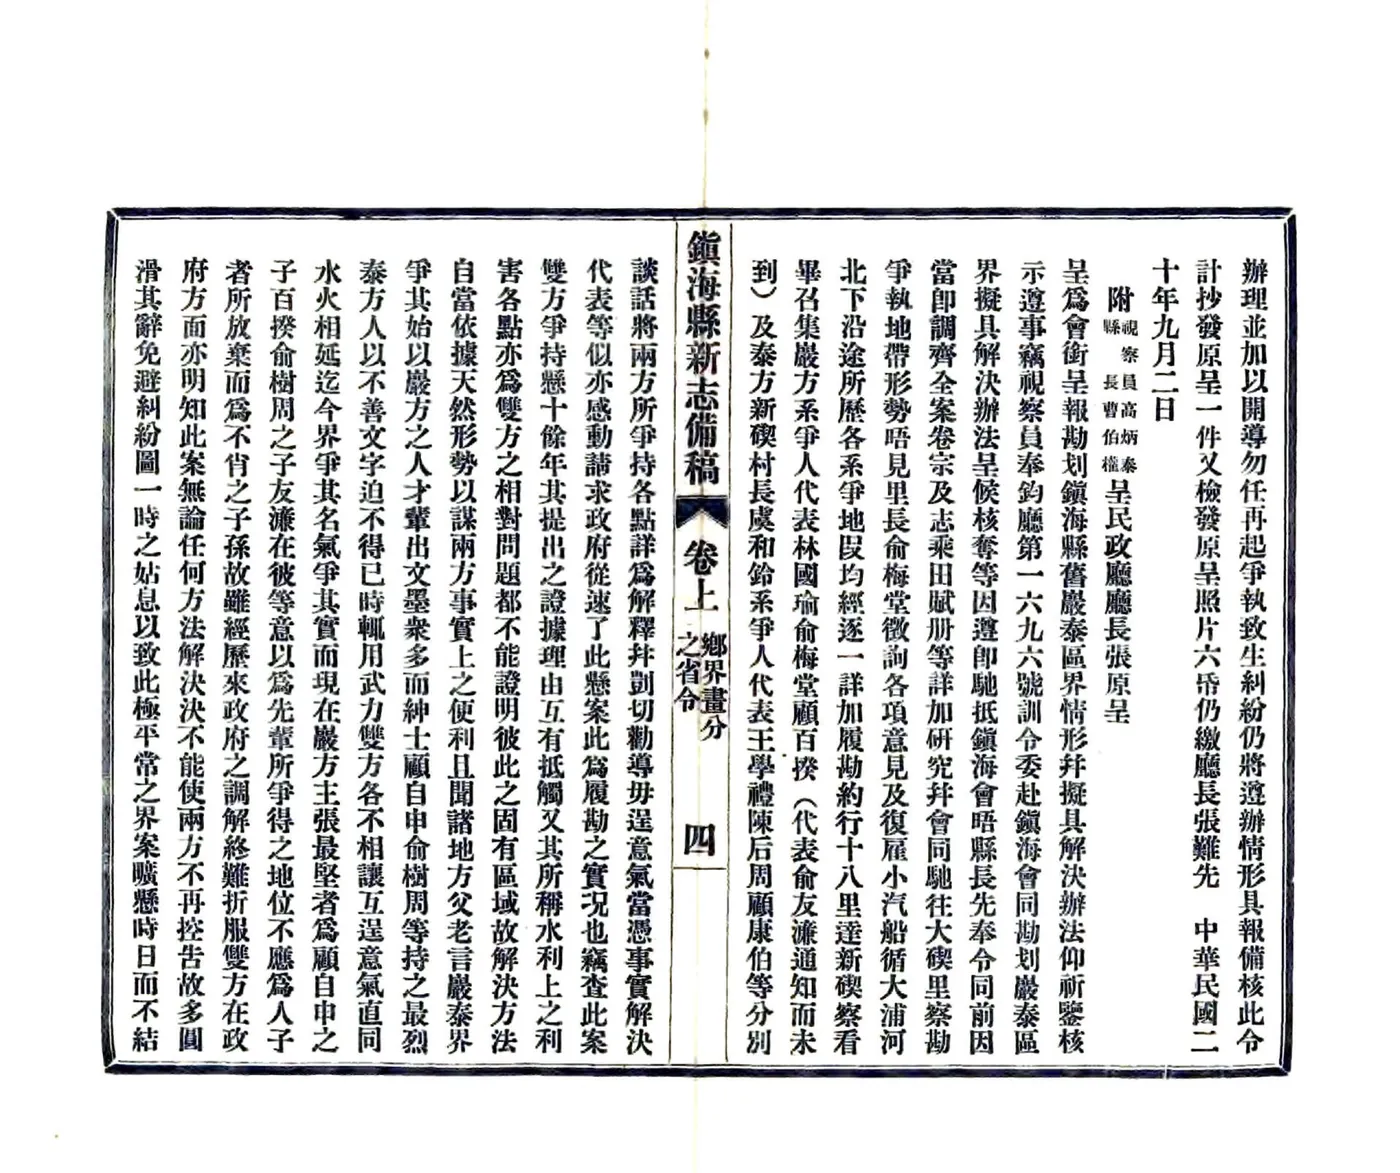 辦理並加以開導勿任再起爭執致生糾紛仍將遵辦情形具報備核此令
計抄發原呈一件又檢發原呈照片六帋仍繳廳長張難先　中華民國二
十年九月二日
附視察員高炳泰縣長曹伯權呈民政廳廳長張原呈
呈爲會銜呈報勘划鎭海縣舊嚴泰區界情形幷擬具解決辦法仰祈鑒核
示遵事竊視察員奉鈞廳第一六九六號訓令委赴鎭海會同勘划嚴泰區
界擬具解決辦法呈候核奪等因遵卽馳抵鎭海會晤縣長先奉令同前因
當卽調齊全案卷宗及志乘田賦册等詳加硏究幷會同馳往大碶里察勘
爭執地帶形勢晤見里長俞梅堂徵詢各項意見及復雇小汽船循大浦河
北下沿途所歷各系爭地段均經逐一詳加履勘約行十八里達新碶察看
畢召集嚴方系爭人代表林國瑜俞梅堂顧百揆（代表俞友濂通知而未
到）及泰方新碶村長虞和鈴系爭人代表王學禮陳后周顧康伯等分別
鎭海縣新志備稿　卷上　鄉界畫分之省令　四
談話將兩方所爭持各點詳爲解釋幷剴切勸導毋逞意氣當憑事實解決
代表等似亦感動請求政府從速了此懸案此爲履勘之實況也竊查此案
雙方爭持懸十餘年其提出之證據理由互有抵觸又其所稱水利上之利
害各點亦爲雙方之相對問題都不能證明彼此之固有區域故解決方法
自當依據天然形勢以謀兩方事實上之便利且聞諸地方父老言嚴泰界
爭其始以嚴方之人才輩出文墨衆多而紳士顧自申俞樹周等持之最烈
泰方人以不善文字迫不得已時輒用武力雙方各不相讓互逞意氣直同
水火相延迄今界爭其名氣爭其實而現在嚴方主張最堅者爲顧自申之
子百揆俞樹周之子友濂在彼等意以爲先輩所爭得之地位不應爲人子
者所放棄而爲不肖之子孫故雖經歷來政府之調解終難折服雙方在政
府方面亦明知此案無論任何方法解決決不能使兩方不再控告故多圓
滑其辭免避糾紛圖一時之姑息以致此極平常之界案曠懸時日而不結